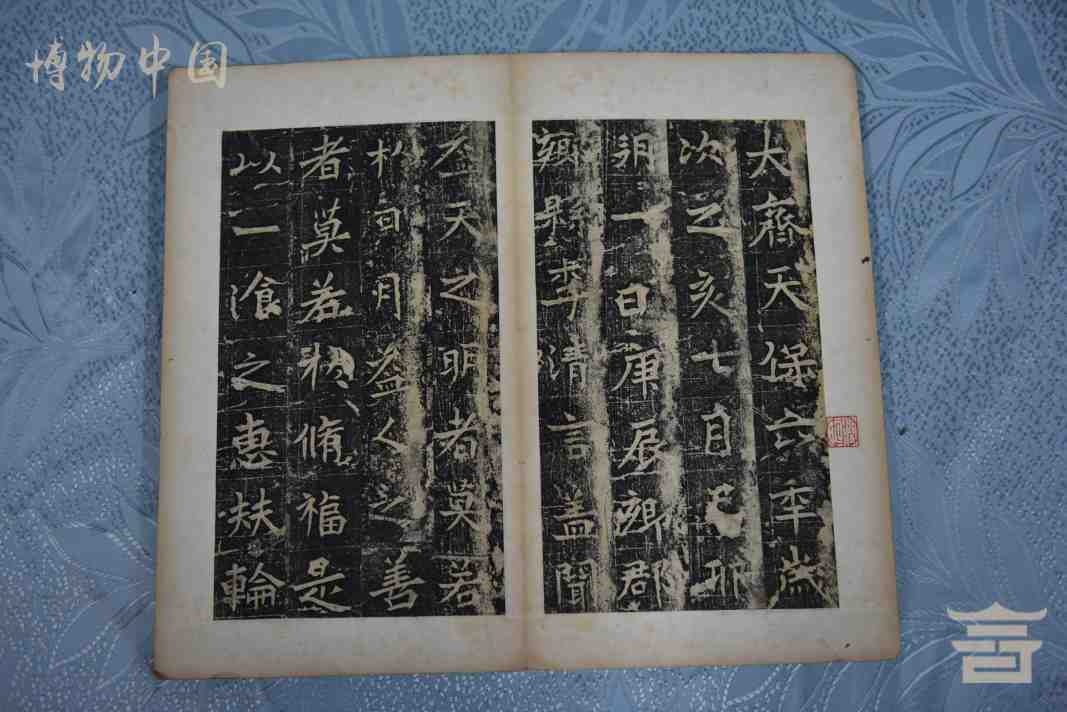 博物中国
大齊天保六年歲
次乙亥七月己卯
朔一日庚辰郡
縣李清言蓋聞
益天之明者莫若
於日月益人之善
者莫若於脩福是
以一飡之惠扶輪